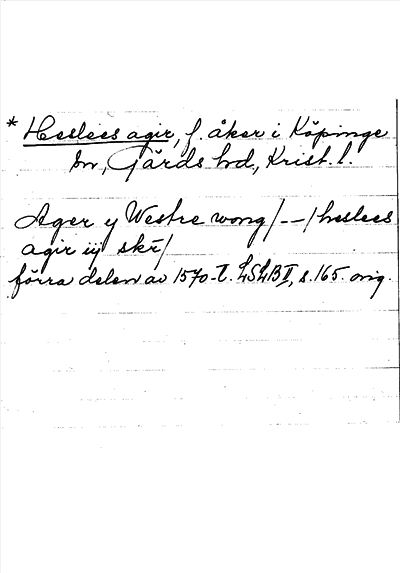 * Heslees agir, f. åker i Köpinge
sn, Gärds hd, Krist. l.
Ager y Westre wong/--/heslees
agir iij skr/
förra delen av 1570-t. LSLB II, s. 165. orig.